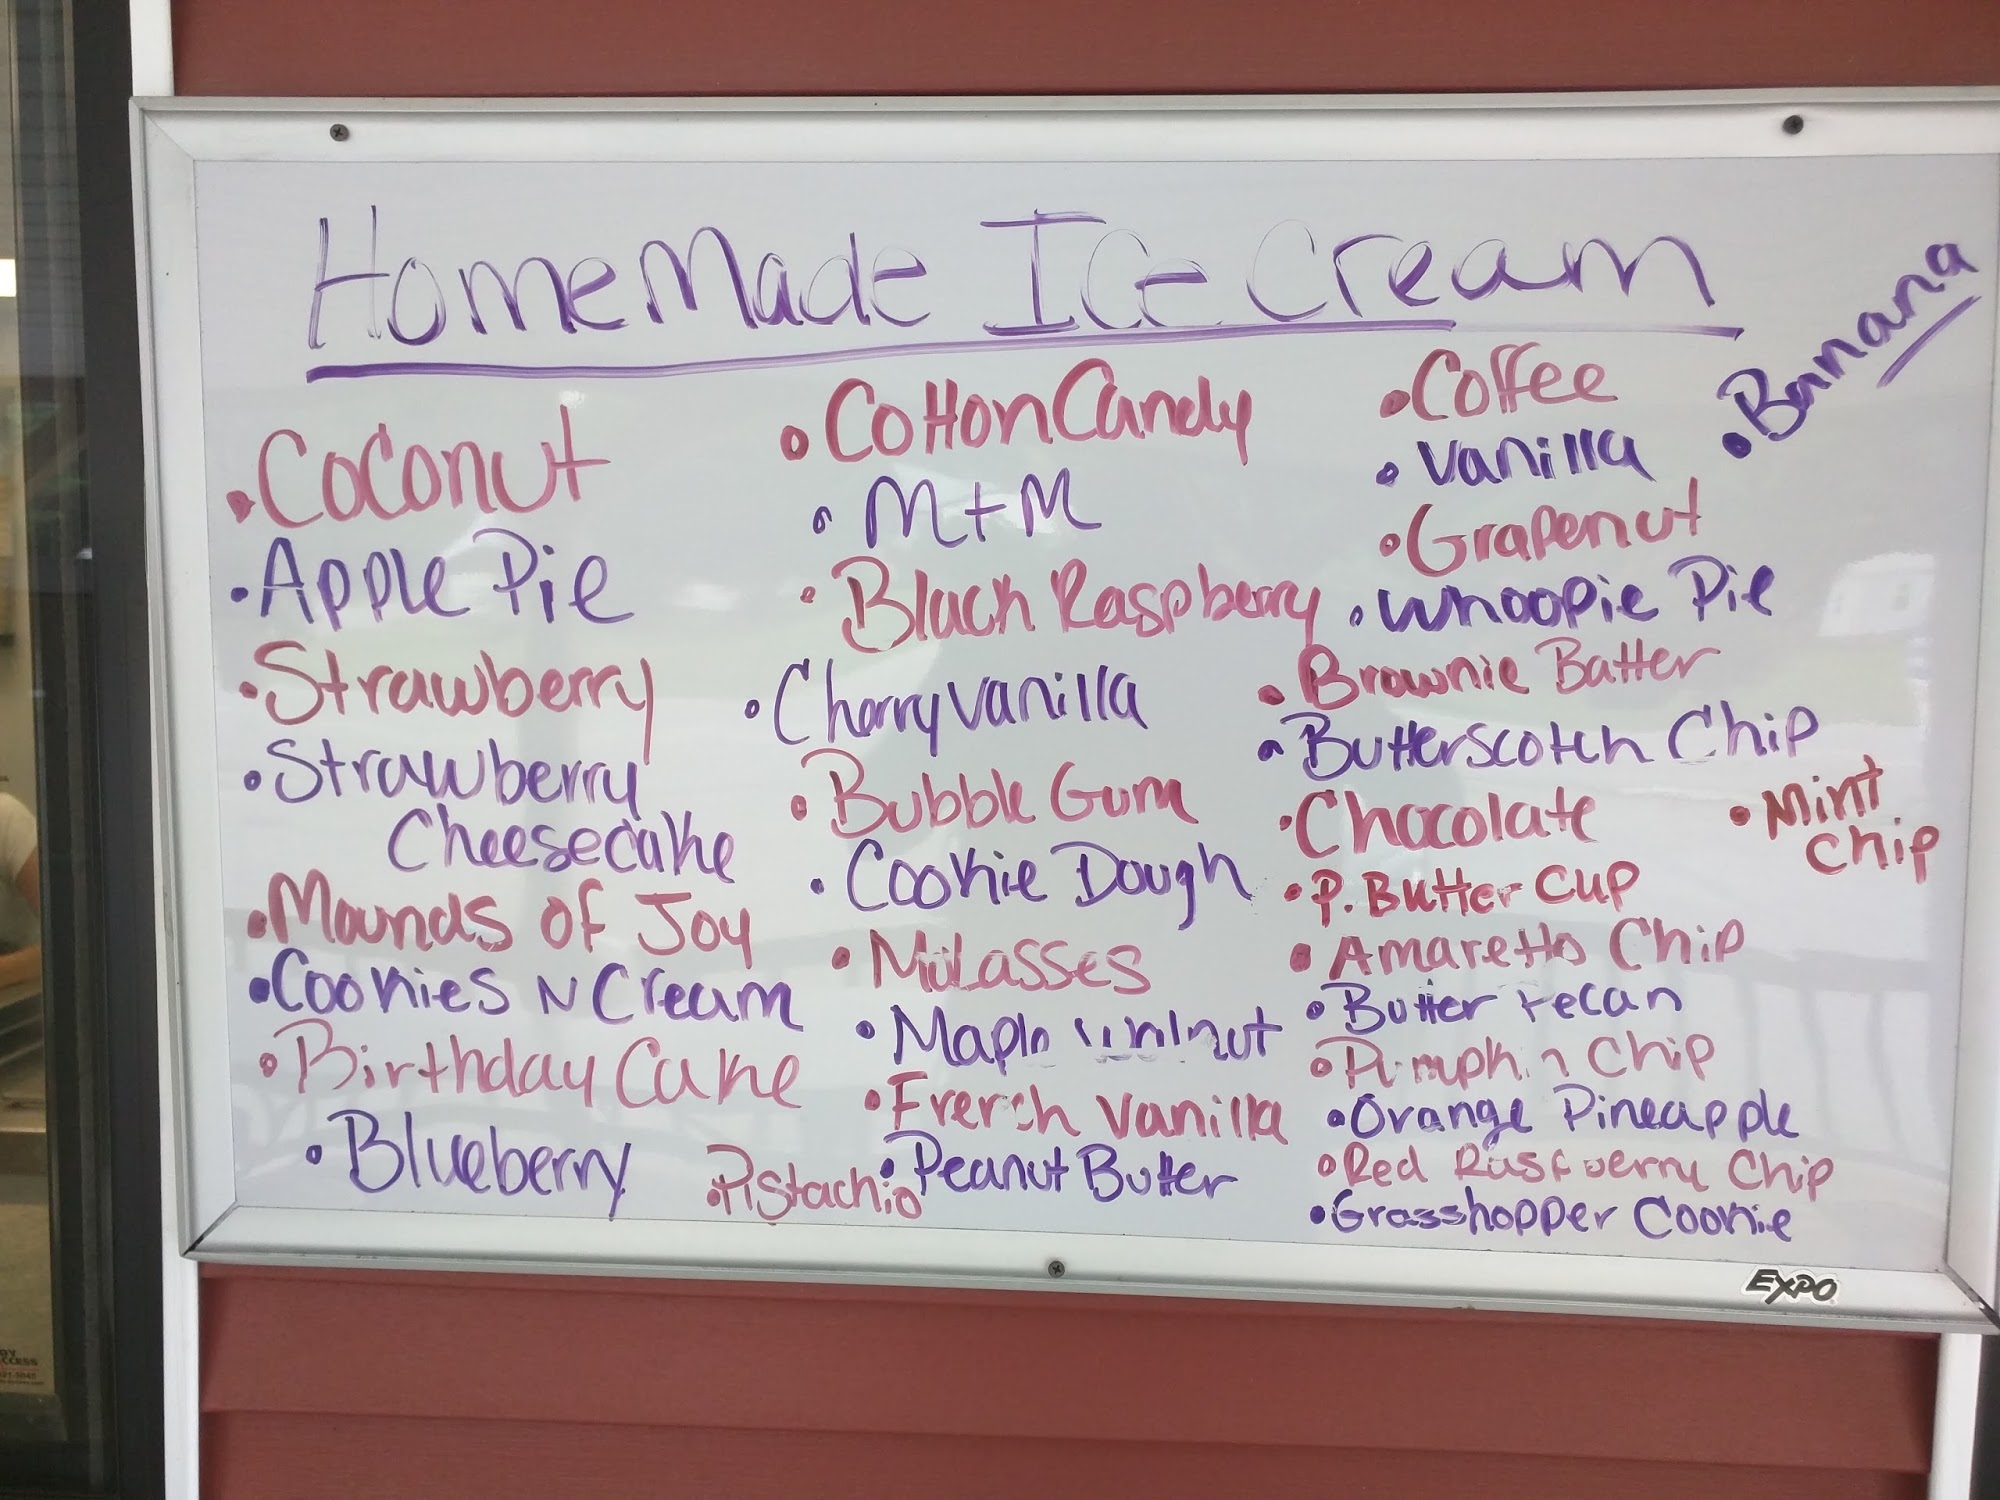 HomeMade Ice Cream
• Banana
• Coconut
• Apple Pie
• Strawberry
• Strawberry
Cheesecake
• Mounds of Joy
• Cookies N Cream
• Birthday Cake
• Blueberry
• Pistachio
• Cotton Candy
• M+M
• Black Raspberry
• Cherry vanilla
• Bubble Gum
• Cookie Dough
• Molasses
• Maple Walnut
• French Vanilla
• Peanut Butter
• Coffee
• Vanilla
• Grapenut
• Whoopie Pie
• Brownie Batter
• Butterscotch Chip
• Chocolate
• P. Butter Cup
• Amaretto Chip
• Butter Pecan
• Pumpkin Chip
• Orange Pineapple
• Red Raspberry Chip
• Grasshopper Cookie
• Mint
Chip
EXPO